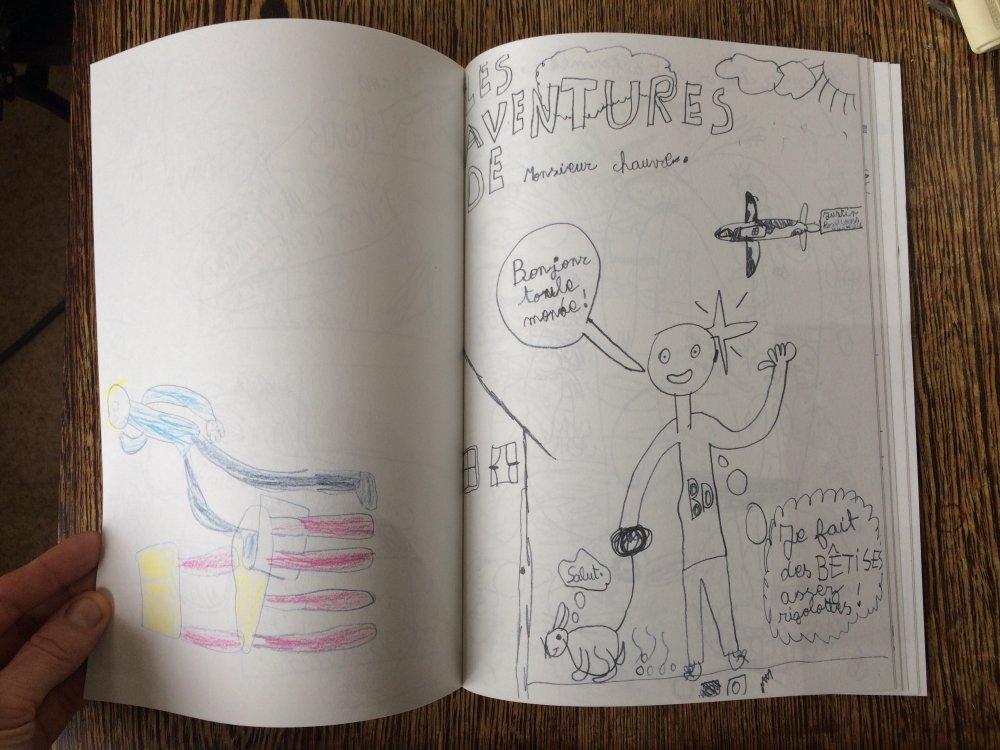 LES
AVENTURES
DE Monsieur chauve.
Bonjour
toule
monde!
BD
Salut.
Je fait
des BÊTISES
assez
rigolottes!